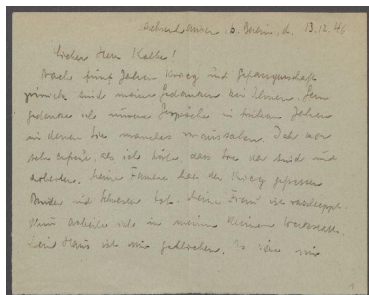 13.12.46
Lieber Herr Kolbe!
Nach fünf Jahren Krieg und Gefangenschaft
zurück sind meine Gedanken bei Ihnen. Gern
gedenke ich unserer Gespräche in früheren Jahren
in denen Sie manches voraussahen. Ich war
sehr erfreut, als ich hörte, dass Sie da sind und
arbeiten. Meine Familie hat der Krieg gefressen
Bruder und Schwester tot. Meine Frau ist verschleppt.
Nun arbeite ich in meiner kleinen Werkstatt.
Mein Haus ist mir geblieben. Es wäre mir